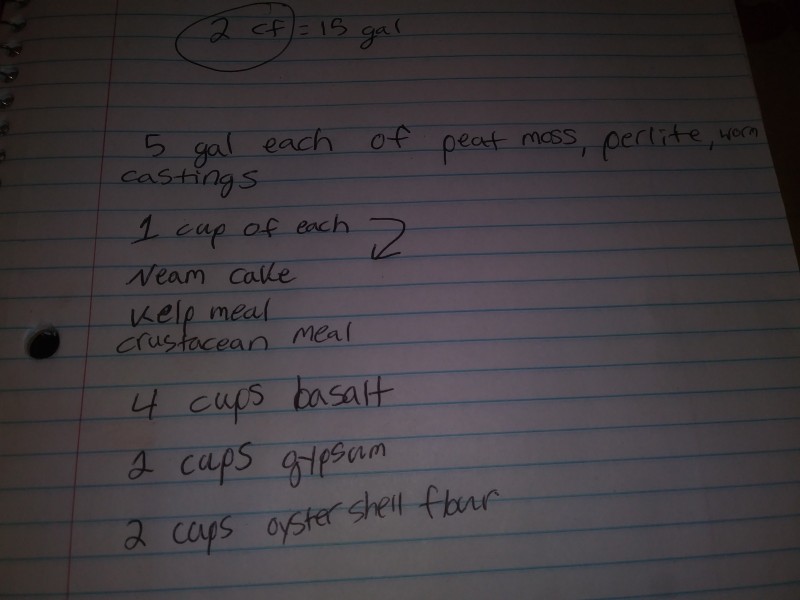 2 cf = 15 gal
5 gal each of peat moss, perlite, worm
castings
1 cup of each
Neam cake
Kelp meal
crustacean meal
4 cups basalt
2 cups gypsum
2 cups oyster shell flour